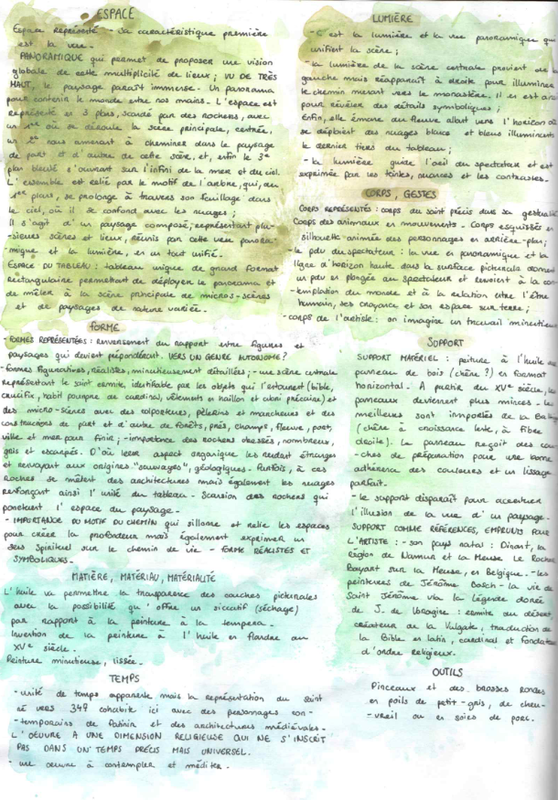 ESPACE
Espace représenté - Sa caractéristique première
est la vue
PANORAMIQUE qui permet de proposer une vision
globale de cette multiplicité de lieux ; VU DE TRÈS
HAUT, le paysage paraît immense. Un panorama
pour contenir le monde entre nos mains. L'espace est
représenté en 3 plans, scandé par des rochers, avec
un 1er où se déroule la scène principale, centrée,
un 2e nous amenant à cheminer dans le paysage
de part et d'autre de cette scène, et, enfin le 3e
plan décalé s'ouvrant sur l'infini de la mer et du ciel.
L'ensemble est relié par le motif de l'arbre, qui, au
1er plan, se prolonge à travers son feuillage dans
le ciel, où il se confond avec les nuages ;
Il s'agit d'un paysage composé, représentant plu-
-sieurs scènes et lieux, réunis par cette vue panora-
-mique et la lumière, en un tout unifié.
ESPACE DU TABLEAU : tableau unique de grand format
rectangulaire permettant de déployer le panorama et
de mêler à la scène principale de micros-scènes
et de paysages de nature variée.
FORME
- FORMES REPRÉSENTÉES : renversement du rapport entre figures et
paysages qui devient prépondérant. VERS UN GENRE AUTONOME ?
- formes figuratives, réalistes, minutieusement détaillées ; - une scène centrale
représentant le saint ermite, identifiable par les objets qui l'entourent (bible,
crucifix, habit pourpre de cardinal, vêtements en haillon et abri précaire) et
des micro-scènes avec des colporteurs, pèlerins et marcheurs et des
constructions de part et d'autre de forêts, prés, champs, fleuve, pont,
ville et mer pour finir ; - importance des rochers obsédés, nombreux,
gris et escarpés. D'où leur aspect organique les rendant étranges
et renvoyant aux origines "sauvages", géologiques. Parfois, à ces
roches se mêlent des architectures mais également les nuages
renforçant ainsi l'unité du tableau - Scansion des rochers qui
ponctuent l'espace du paysage.
- IMPORTANCE DU MOTIF DU CHEMIN qui sillonne et relie les espaces
pour créer la profondeur mais également exprimer un
sens spirituel sur le chemin de vie - FORME RÉALISTES ET
SYMBOLIQUES -
MATIÈRE, MATÉRIAU, MATÉRIALITÉ
L'huile va permettre la transparence des couches picturales
avec la possibilité qu'offre un siccatif (séchage)
par rapport à la peinture à la tempera.
Invention de la peinture à l'huile en Flandre au
XVe siècle.
Peinture minutieuse, lissée.
TEMPS
- unité de temps apparente mais la représentation du saint
né vers 347 cohabite ici avec des personnages con-
-temporains de Patinir et des architectures médiévales.
L'OEUVRE A UNE DIMENSION RELIGIEUSE QUI NE S'INSCRIT
PAS DANS UN TEMPS PRÉCIS MAIS UNIVERSEL.
- une oeuvre à contempler et méditer.
LUMIÈRE
- C'est la lumière et la vue panoramique qui
unifient la scène ;
- la lumière de la scène centrale provient de
gauche mais réapparaît à droite pour illuminer
le chemin menant vers le monastère,
pour révéler des détails symboliques ;
Enfin, elle émane du fleuve allant vers l'horizon où
se déploient des nuages blancs et bleus illuminant
le dernier tiers du tableau ;
- la lumière guide l'oeil du spectateur et est
exprimée par les teintes, nuances et les contrastes.
CORPS, GESTES
CORPS REPRÉSENTÉS : corps du saint précis dans sa gestuelle
Corps des animaux en mouvements - Corps esquissés en
silhouette animée des personnages en arrière-plan ;
- le pdv du spectateur : la vue en panoramique et la
ligne d'horizon haute dans la surface picturale donne
un pdv en plongée au spectateur et renvoient à la con-
-templation du monde et à la relation entre l'être
humain, ses croyances et son espace sur terre ;
- corps de l'artiste : on imagine un travail minutieux
SUPPORT
SUPPORT MATÉRIEL : peinture à l'huile
panneau de bois (chêne ?) en format
horizontal. À partir du XVe siècle, les
panneaux deviennent plus minces - les
meilleurs sont importés de la Baltique
(chêne à croissance lente, à fibre
droite). Le panneau reçoit des cou-
-ches de préparation pour une bonne
adhérence des couleurs et un lissage
parfait.
- le support disparaît pour accentuer
l'illusion de la vue d'un paysage.
SUPPORT COMME RÉFÉRENCES, EMPRUNTS POUR
L'ARTISTE : - son pays natal : Dinant, la
région de Namur et la Meuse. Le Rocher
Bayart sur la Meuse, en Belgique - les
peintures de Jérôme Bosch - la vie de
Saint Jérôme via la légende dorée
de J. de Voragine : ermite au désert
créateur de la Vulgate, traduction de
la Bible en latin, cardinal et fondateur
d'ordre religieux.
OUTILS
Pinceaux et des brosses rondes
en poils de petit-gris, de che-
-vreuil ou en soies de porc.